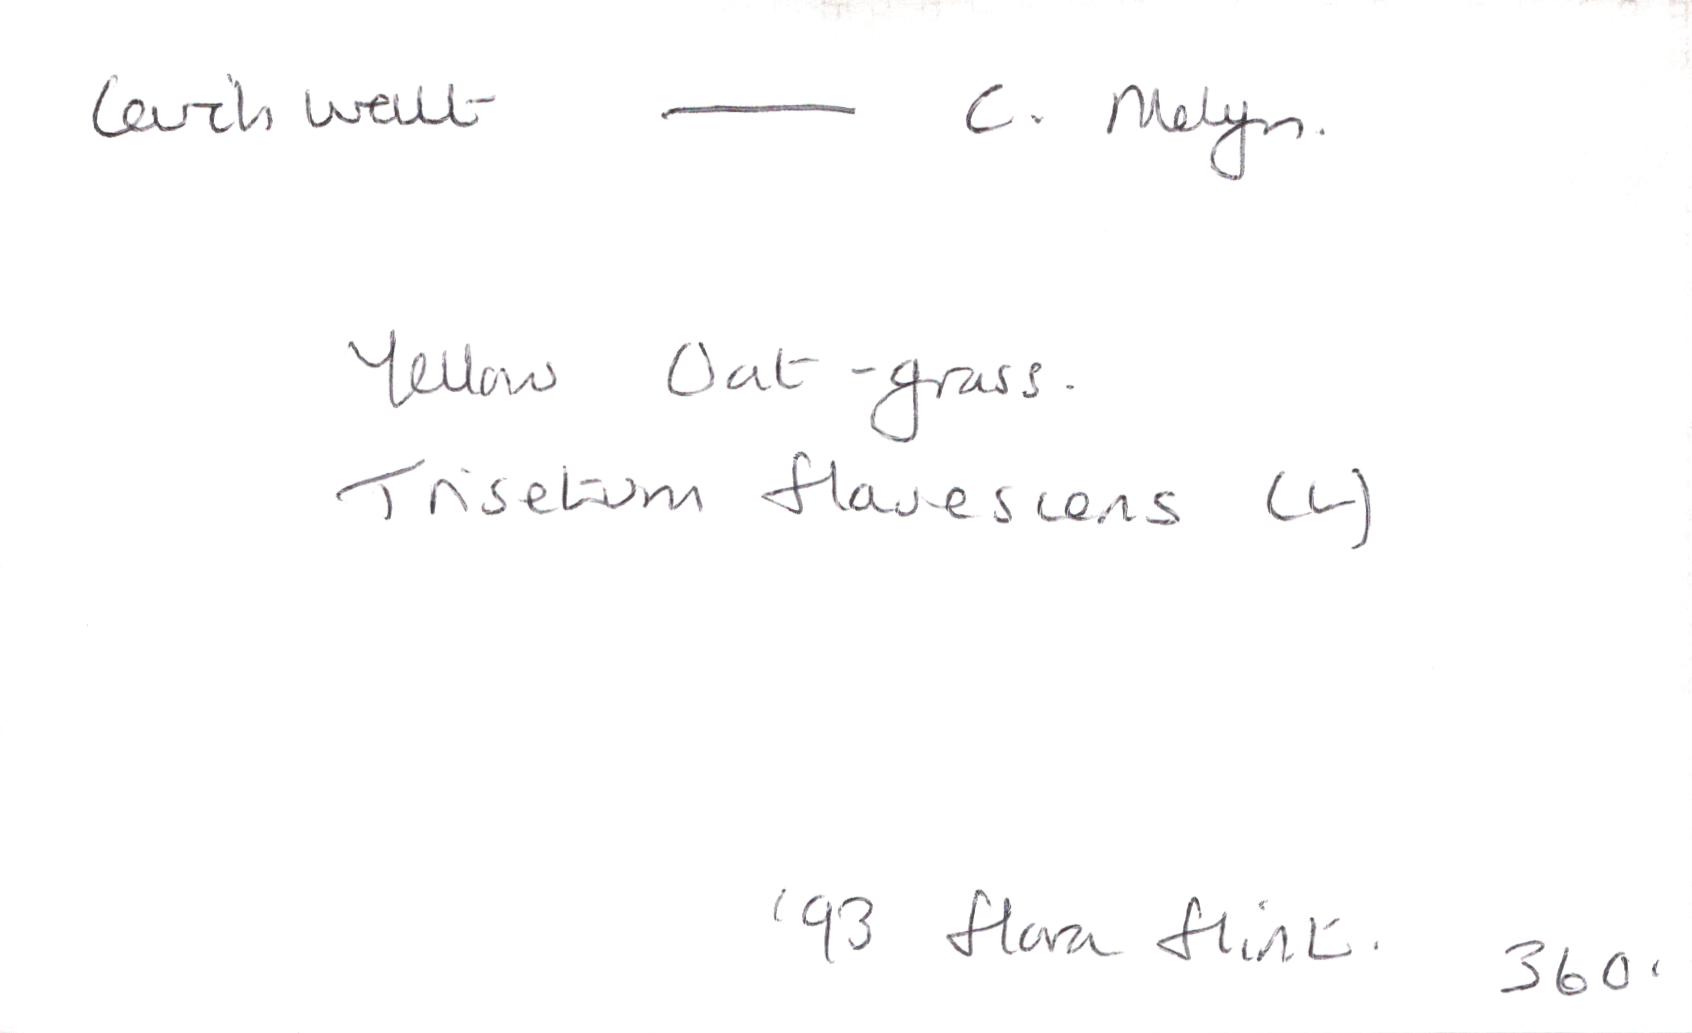 Ceirch wellt — C. Melyn.
Yellow Oat-grass.
Trisetum flavescens (L)
'93 flora flint.
360.